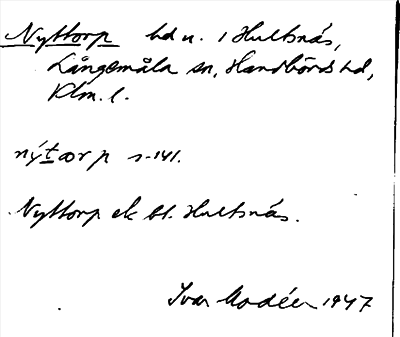 Nyttorp hd u. 1 Hultsnäs,
Långemåla sn, Handbörds hd,
Klm. l.
nýtorp s-141.
Nyttorp ek bl. Hultsnäs.
Ivar Modéer 1947